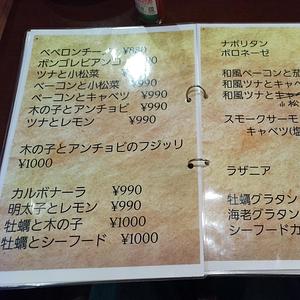 ペペロンチーノ ¥880
ボンゴレビアンコ
ツナと小松菜 ¥990
ベーコンと小松菜 ¥990
ベーコンとキャベツ ¥990
木の子とアンチョビ ¥990
ツナとレモン ¥990
木の子とアンチョビのフジッリ
¥1000
カルボナーラ ¥990
明太子とレモン ¥990
牡蠣と木の子 ¥1000
牡蠣とシーフード ¥1000
ナポリタン
ボロネーゼ
和風ベーコンと
和風ツナとキャベ
和風ツナとキ
小松
スモークサーモ
キャベツ
ラザニア
牡蠣グラタン
海老グラタン
シーフード